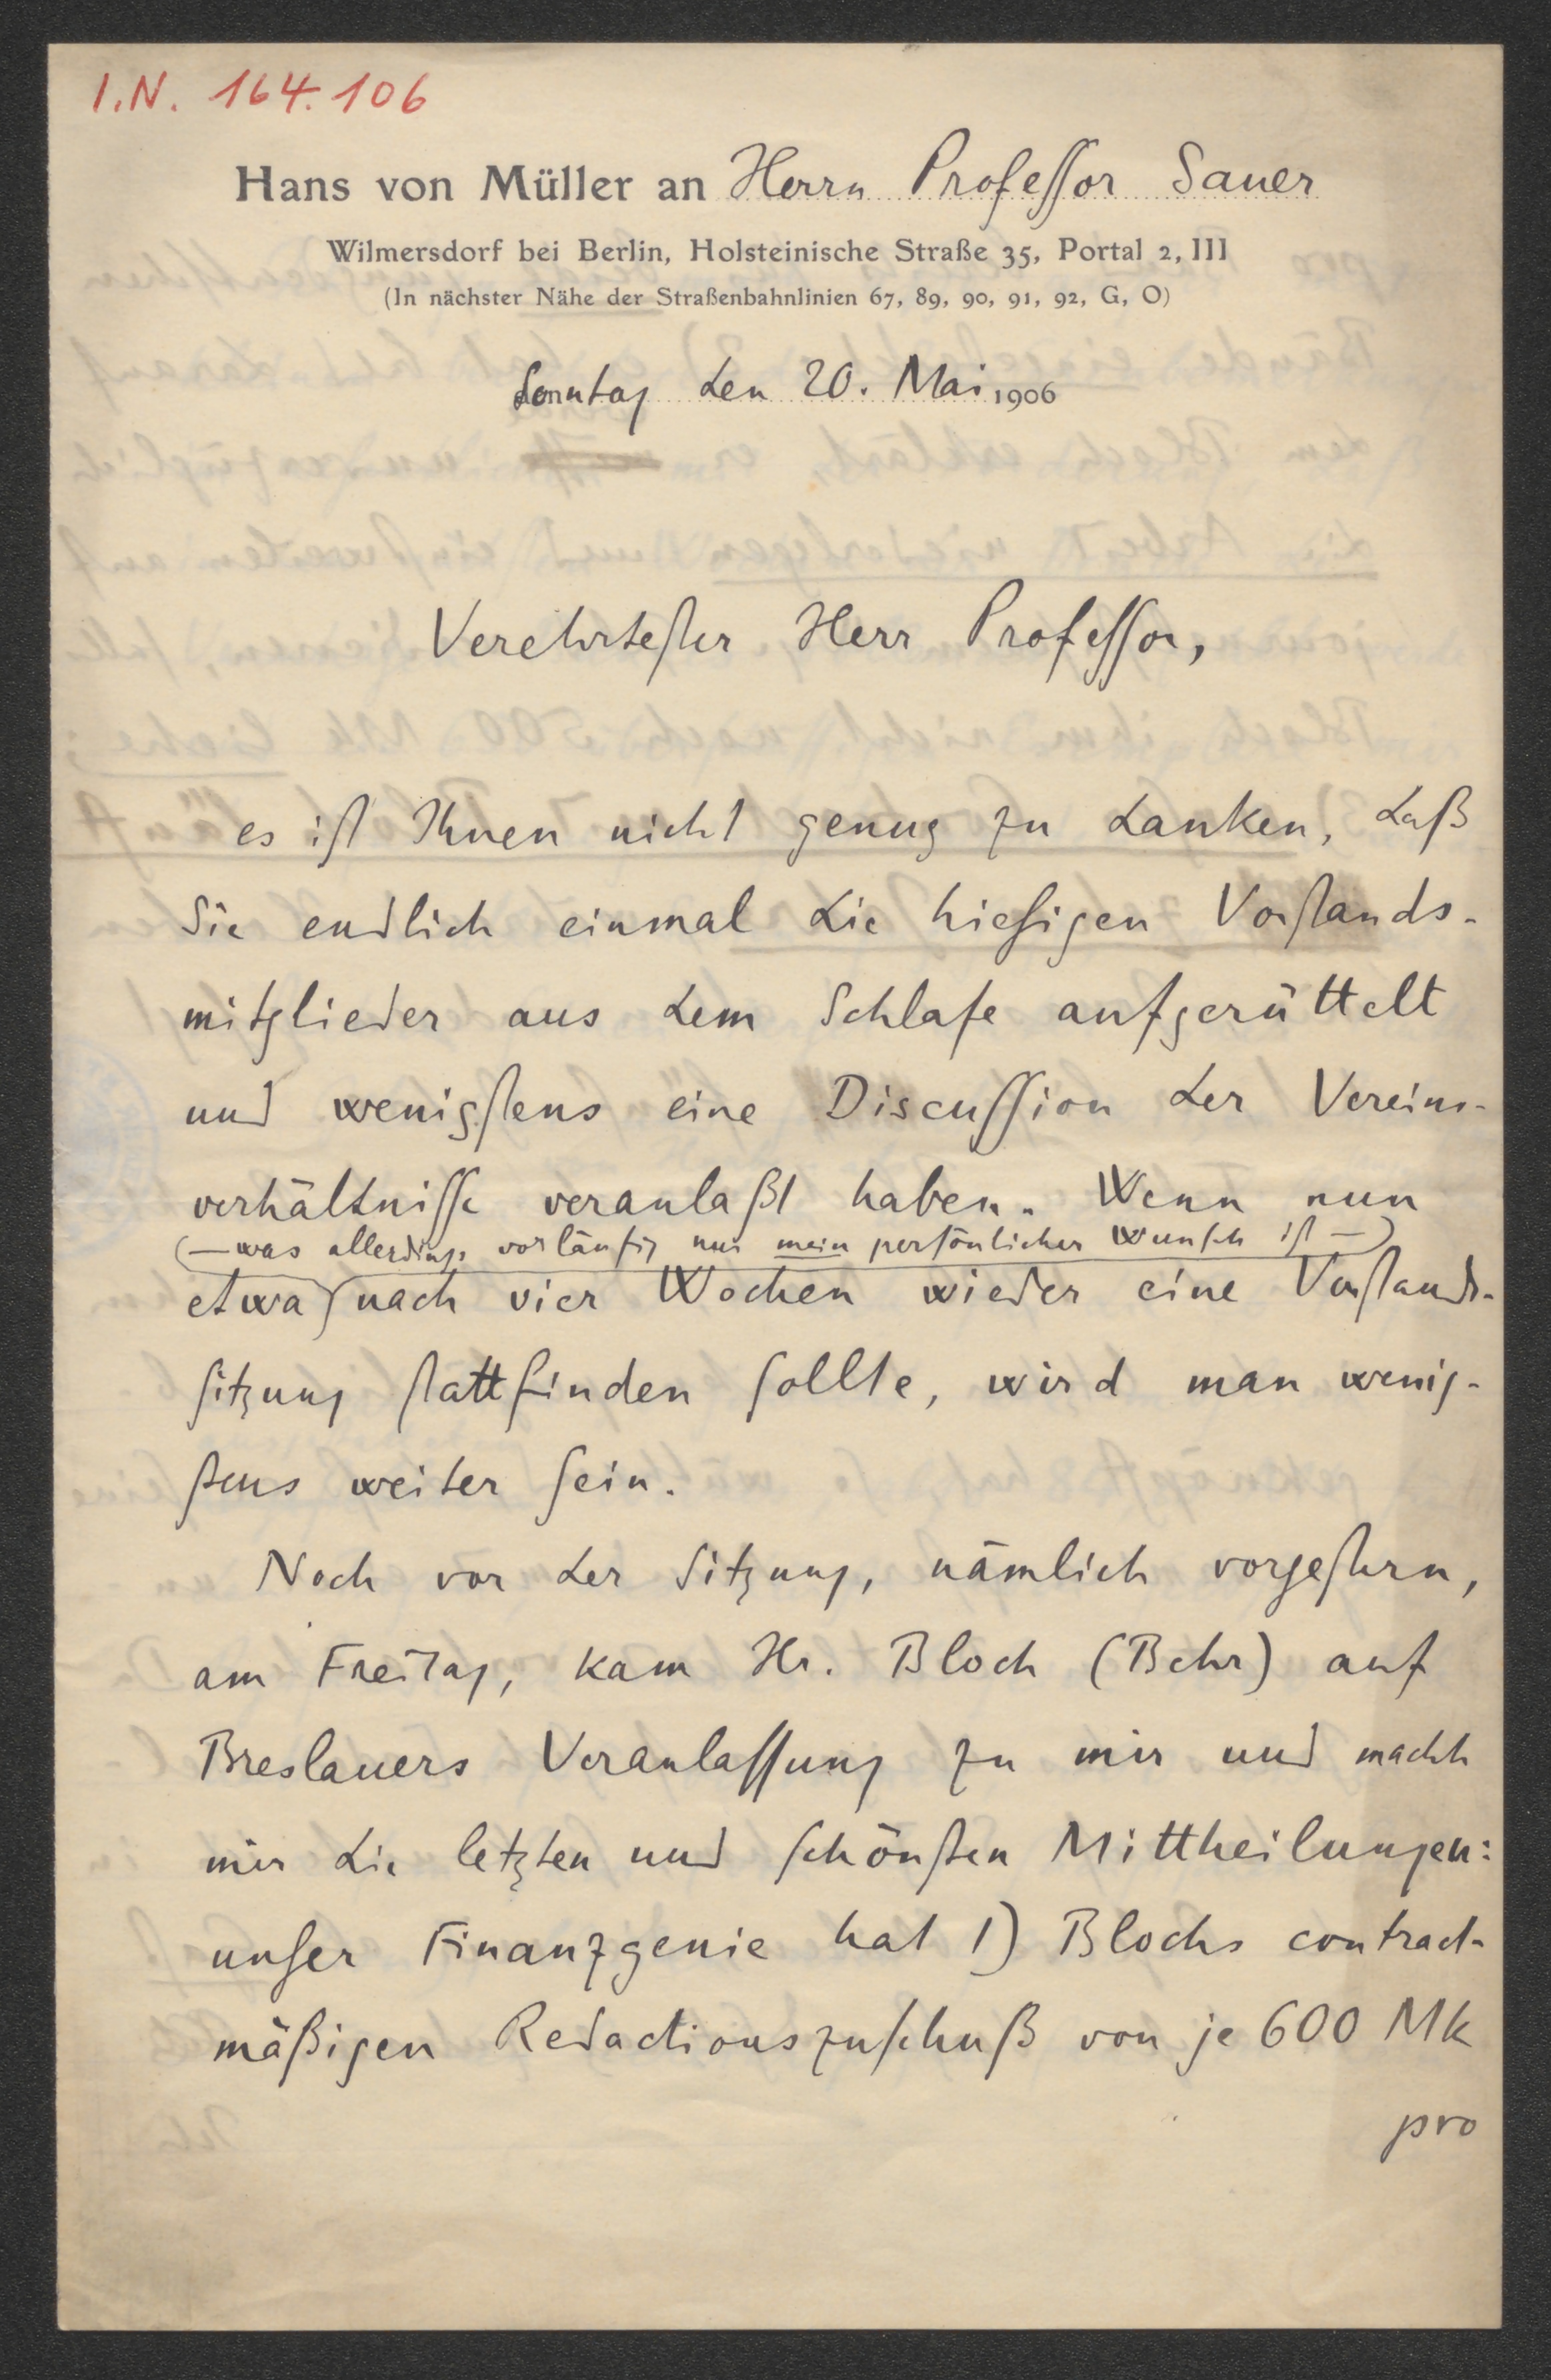 I.N. 164.106
Hans von Müller an Herrn Professor Sauer
Wilmersdorf bei Berlin, Holsteinische Straße 35, Portal 2, III
(In nächster Nähe der Straßenbahnlinien 67, 89, 90, 91, 92, G, O)
Sonntag den 20. Mai 1906
Verehrtester Herr Professor,
es ist Ihnen nicht genug zu danken, daß
Sie endlich einmal die hiesigen Vorstands-
mitglieder aus dem Schlafe aufgerüttelt
und wenigstens eine Discussion der Vereins-
verhältnisse veranlaßt haben. Wenn nun
(—was allerdings vorläufig nur mein persönlicher Wunsch ist—)
etwa nach vier Wochen wieder eine Vorstands-
sitzung stattfinden sollte, wird man wenig-
stens weiter sein.
Noch vor der Sitzung, nämlich vorgestern,
am Freitag, kam Hr. Bloch (Behr) auf
Breslauers Veranlassung zu mir und machte
mir die letzten und schönsten Mittheilungen:
unser Finanzgenie hat 1) Blochs contract-
mäßigen Redactionszuschuß von je 600 Mk
pro